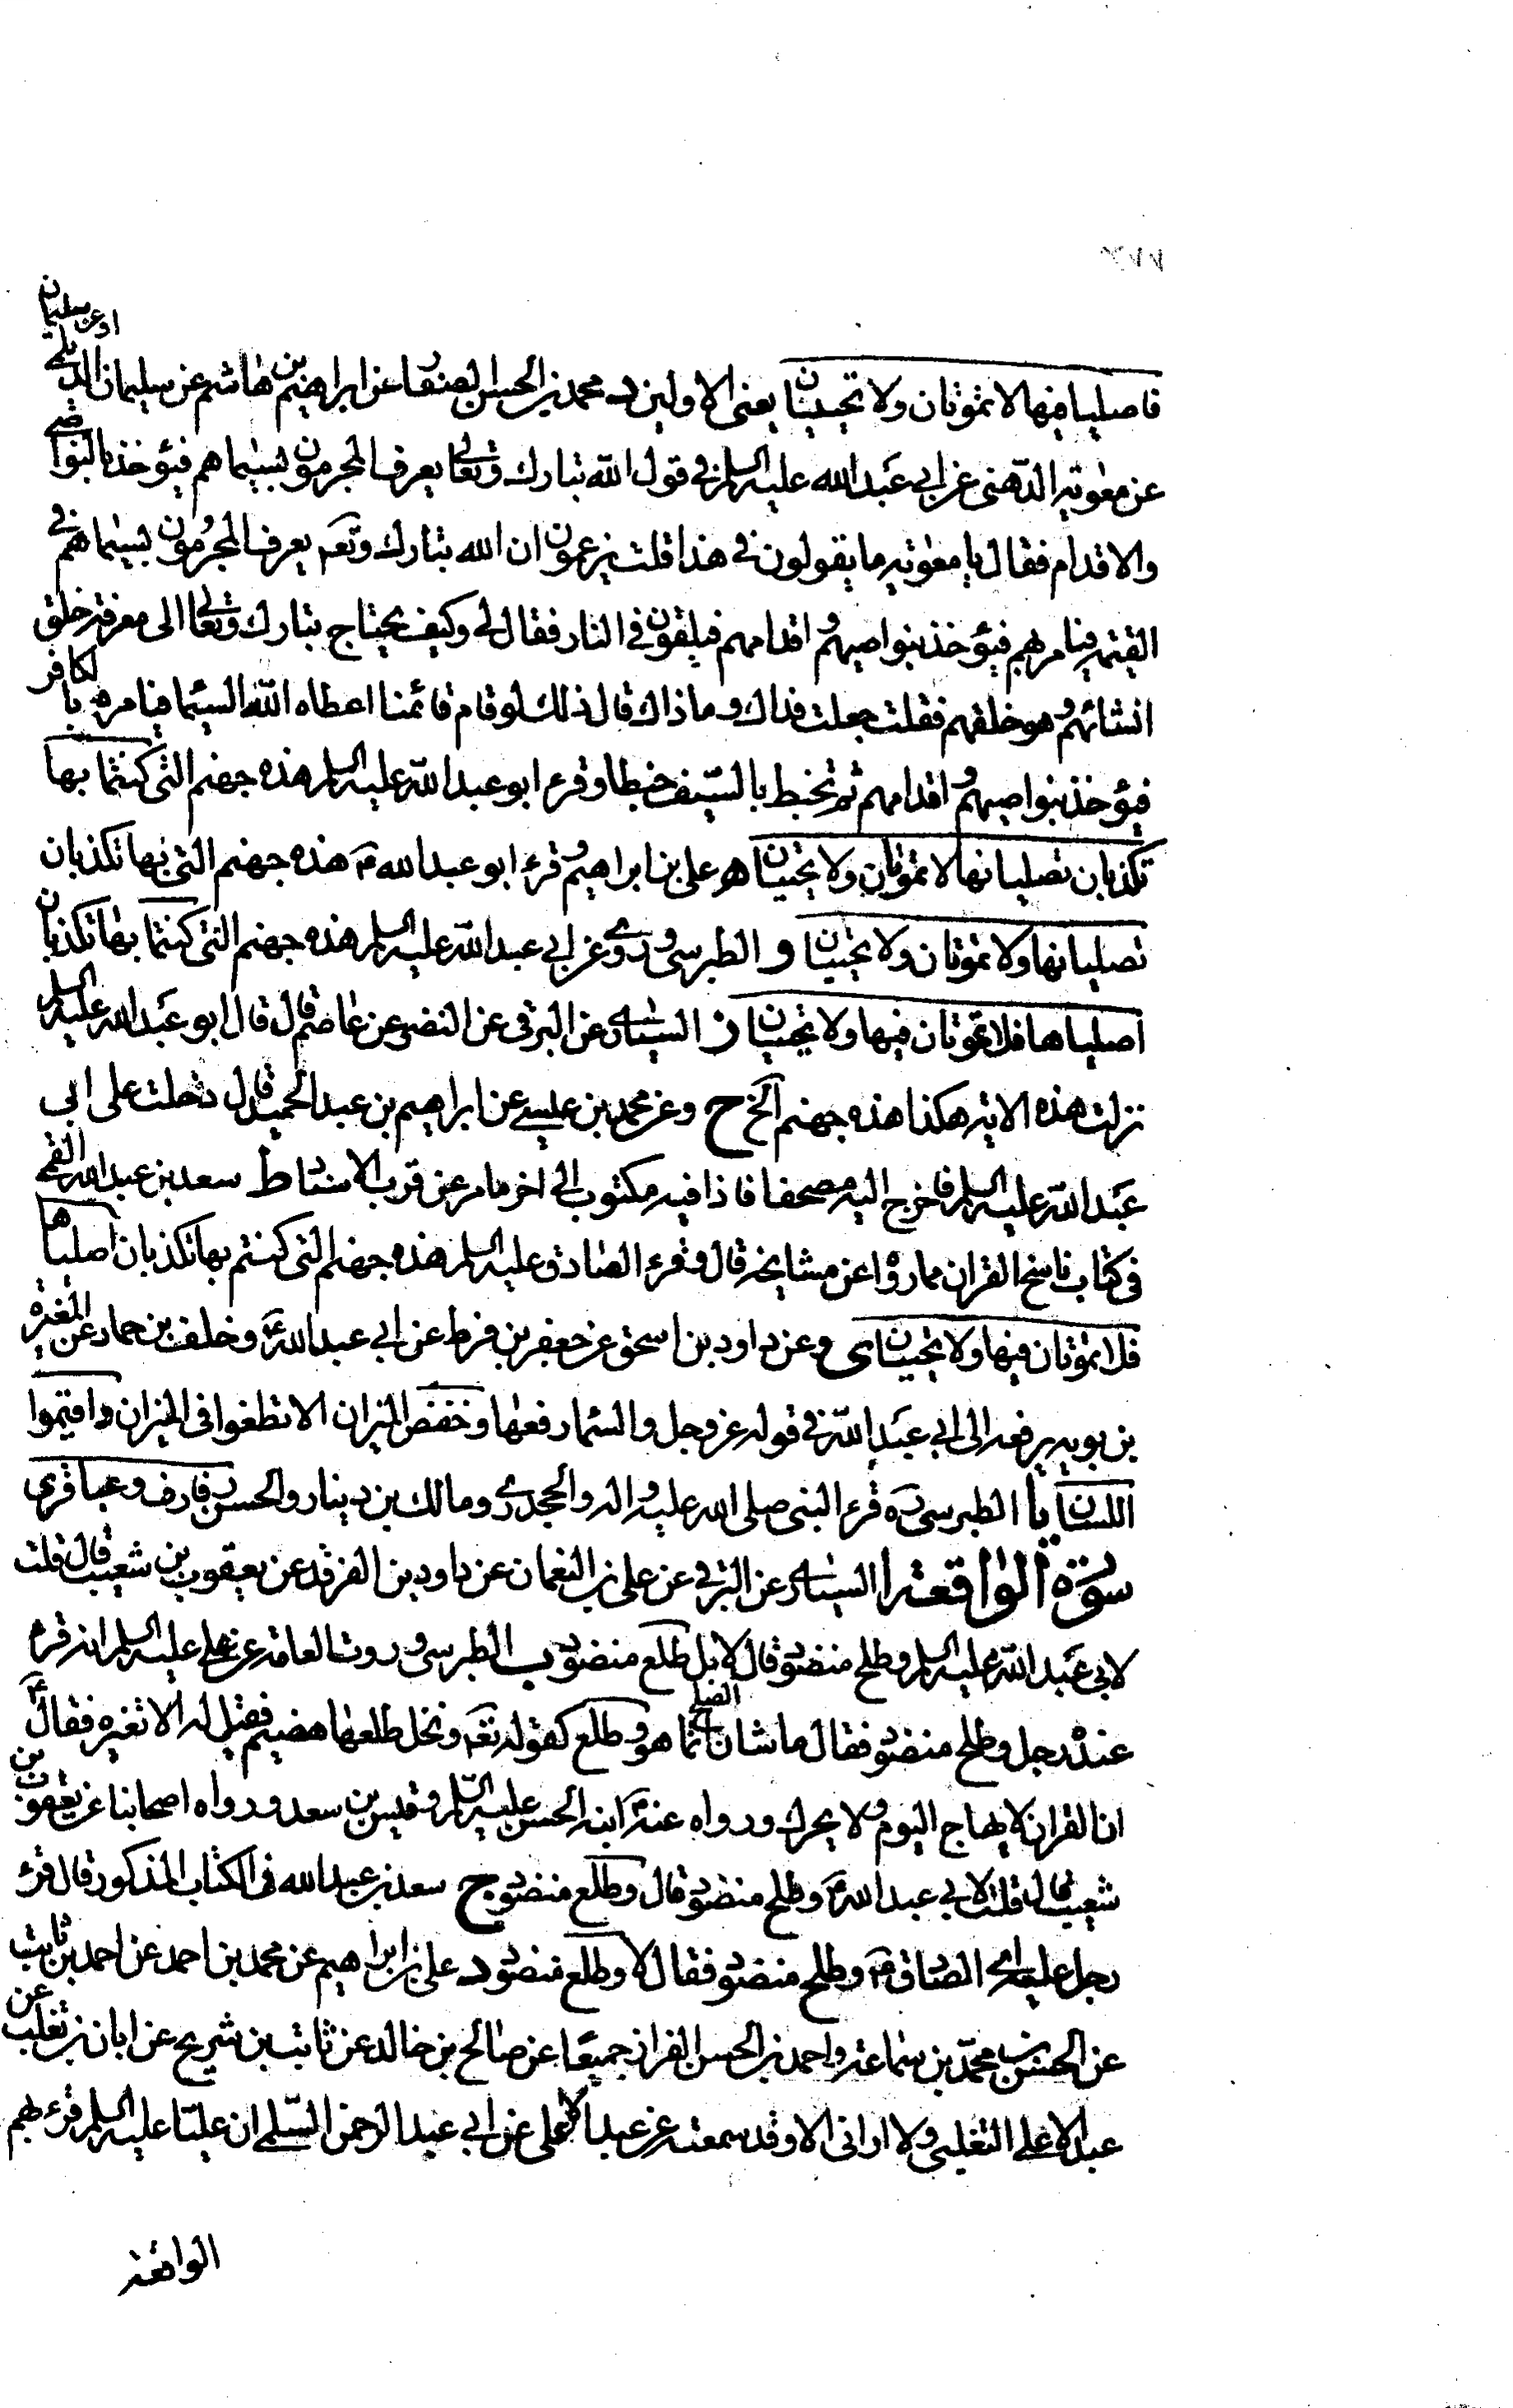 او عن سليمان
فاصليا فيها لا تموتان ولا تحييان يعنى الاولين د محمد بن الحسن الصفار عن ابراهيم بن هاشم عن سليمان الديلمي
عن معوية الدهنى عن ابي عبد الله عليه السلم في قول الله تبارك وتعالى يعرف المجرمون بسيماهم فيؤخذ بالنواصي
والاقدام فقال يا معوية ما يقولون في هذا قلت يزعمون ان الله تبارك وتعه يعرف المجرمون بسيماهم في
القيمة فيامر بهم فيؤخذ بنواصيهم و اقدامهم فيلقون في النار فقال لي وكيف يحتاج تبارك وتعالى الى معرفة خلق
انشائهم و هو خلقهم فقلت جعلت فداك وما ذاك قال ذلك لو قام قائمنا اعطاه الله السيما فيامر بالكافر
فيؤخذ بنواصيهم و اقدامهم ثم تخبط بالسيف خبطا وقرء ابو عبد الله عليه السلم هذه جهنم التى كنتما بها
تكذبان تصليانها لا تموتان ولا تحييان ه علي بن ابراهيم و قرء ابو عبد الله ع هذه جهنم التى بها تكذبان
تصليانها ولا تموتان ولا تحييان و الطبرسي و روى عن ابي عبد الله عليه السلم هذه جهنم التى كنتما بها تكذبان
اصلياها فلا تموتان فيها ولا تحييان ز السياري عن البرقى عن النضر عن عاصم قال قال ابو عبد الله عليه السلم
نزلت هذه الاية هكذا هذه جهنم الخ ح وعن محمد بن عليسى عن ابراهيم بن عبد الحميد قال دخلت على ابى
عبد الله عليه السلم فاخرج اليه مصحفا فاذا فيه مكتوب الى اخر ما مر عن قرب الاسناد ط سعد بن عبد الله القمي
فى كتاب ناسخ القران مما رووا عن مشايخه قال وقرء الصادق عليه السلم هذه جهنم التى كنتم بها تكذبان اصلياها
فلا تموتان فيها ولا تحييان ى وعن داود بن اسحق عن جعفر بن قرط عن ابي عبد الله ع وخلف بن حماد عن المغيرة
بن بويه يرفعه الى ابي عبد الله في قوله عز وجل والسماء رفعها وخفض الميزان الا تطغوا فى الميزان واقيموا
اللسان يا الطبرسي ره قرء النبى صلى الله عليه و اله والجحدري ومالك بن دينار والحسن رفارف وعباقرى
سورة الواقعة ا السياري عن البرقي عن على بن النعمان عن داود بن الفرقد عن يعقوب بن شعيب قال قلت
لابي عبد الله عليه السلم وطلح منضود قال لا بل طلع منضود ب الطبرسي و روت العامة عن علي عليه السلم انه قرء
عنده رجل وطلح منضود فقال ما شان الطلح انما هو و طلع كقوله تعه ونخل طلعها هضيم فقيل له الا تغيره فقال
ان القران لا يهاج اليوم و لا يحرك ورواه عنه ع ابنه الحسن عليه السلم وقيس بن سعد ورواه اصحابنا عن يعقوب بن
شعيب قال قلت لابي عبد الله ع وطلح منضود قال وطلع منضود ج سعد بن عبد الله فى الكتاب المذكور قال قرء
رجل على الصادق ع وطلح منضود فقال لا وطلع منضود د على بن ابراهيم عن محمد بن احمد عن احمد بن ثابت
عن الحسن بن محمد بن سماعة واحمد بن الحسن القزاز جميعا عن صالح بن خالد عن ثابت بن شريح عن ابان بن تغلب عن
عبد الاعلى التغلبى ولا ارانى الا وقد سمعته عن عبد الاعلى عن ابي عبد الرحمن السلمي ان عليا عليه السلم قرء بهم
الواقعة